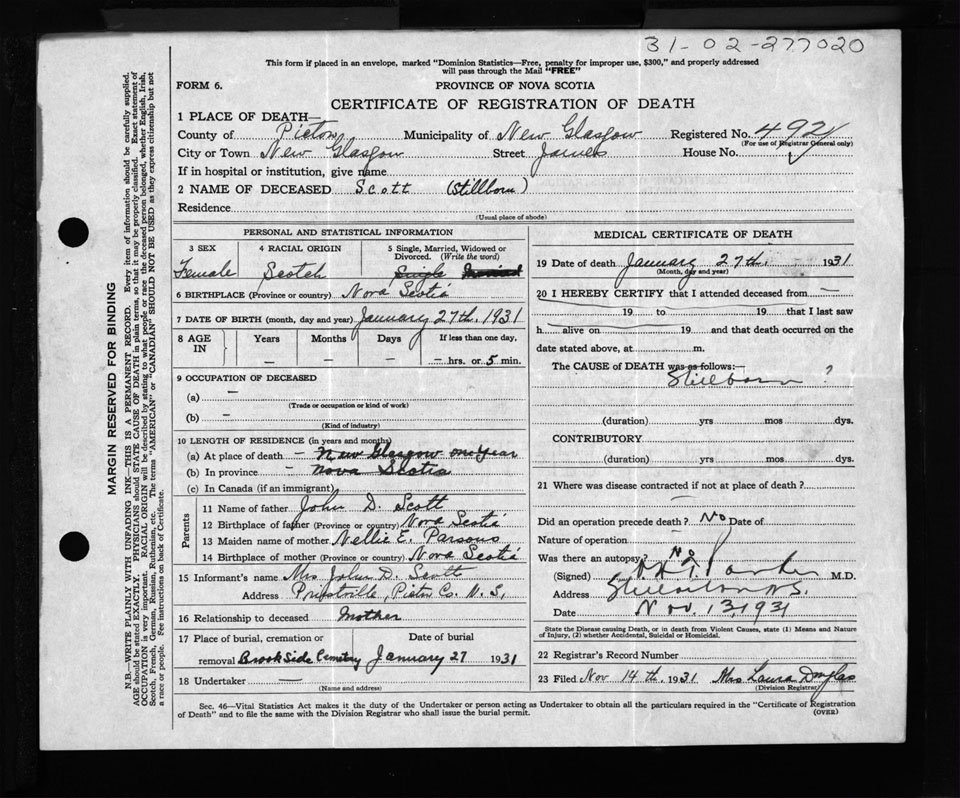 31-02-277020
This form if placed in an envelope, marked "Dominion Statistics—Free, penalty for improper use, $300," and properly addressed
will pass through the Mail "FREE"
FORM 6.
PROVINCE OF NOVA SCOTIA
CERTIFICATE OF REGISTRATION OF DEATH
1 PLACE OF DEATH—
County of Pictou Municipality of New Glasgow Registered No. 492
(For use of Registrar General only)
City or Town New Glasgow Street James House No.
If in hospital or institution, give name
2 NAME OF DECEASED Scott (Stillborn)
Residence
(Usual place of abode)
PERSONAL AND STATISTICAL INFORMATION
3 SEX 4 RACIAL ORIGIN 5 Single, Married, Widowed or Divorced. (Write the word)
Female Scotch Single
6 BIRTHPLACE (Province or country) Nova Scotia
7 DATE OF BIRTH (month, day and year) January 27th. 1931
8 AGE IN Years Months Days If less than one day,
— — — — hrs. or 5 min.
9 OCCUPATION OF DECEASED
(a) —
(Trade or occupation or kind of work)
(b) —
(Kind of industry)
10 LENGTH OF RESIDENCE (in years and months)
(a) At place of death — New Glasgow one year
(b) In province — Nova Scotia
(c) In Canada (if an immigrant)
Parents
11 Name of father John D. Scott
12 Birthplace of father (Province or country) Nova Scotia
13 Maiden name of mother Nellie E. Parsons
14 Birthplace of mother (Province or country) Nova Scotia
15 Informant's name Mrs John D. Scott
Address Priestville, Pictou Co. N.S,
16 Relationship to deceased Mother
17 Place of burial, cremation or Date of burial
removal Brookside Cemetry January 27 1931
18 Undertaker —
(Name and address)
MEDICAL CERTIFICATE OF DEATH
19 Date of death January 27th. 1931
(Month, day and year)
20 I HEREBY CERTIFY that I attended deceased from —
19 to 19 that I last saw
h alive on 19 and that death occurred on the
date stated above, at m.
The CAUSE of DEATH was as follows:—
Stillborn ?
(duration) yrs mos dys.
CONTRIBUTORY
(duration) yrs mos dys.
21 Where was disease contracted if not at place of death?
Did an operation precede death? No Date of
Nature of operation
Was there an autopsy? No
(Signed) M.D.
Address Stellarton N.S.
Date Nov. 13, 1931
State the Disease causing Death, or in death from Violent Causes, state (1) Means and Nature
of Injury, (2) whether Accidental, Suicidal or Homicidal.
22 Registrar's Record Number
23 Filed Nov 14th. 1931 Mrs Laura Douglas
(Division Registrar)
Sec. 46—Vital Statistics Act makes it the duty of the Undertaker or person acting as Undertaker to obtain all the particulars required in the "Certificate of Registration
of Death" and to file the same with the Division Registrar who shall issue the burial permit.
(OVER)
MARGIN RESERVED FOR BINDING
N.B.—WRITE PLAINLY WITH UNFADING INK—THIS IS A PERMANENT RECORD. Every item of information should be carefully supplied.
AGE should be stated EXACTLY. PHYSICIANS should STATE CAUSE OF DEATH in plain terms, so that it may be properly classified. Exact statement of
OCCUPATION is very important. RACIAL ORIGIN will be described by stating to what people or race the deceased person belonged, whether English, Irish,
Scotch, French, German, Russian, Ruthenian, etc. The terms "AMERICAN" or "CANADIAN" SHOULD NOT BE USED as they express citizenship but not
a race or people. See instructions on back of Certificate.